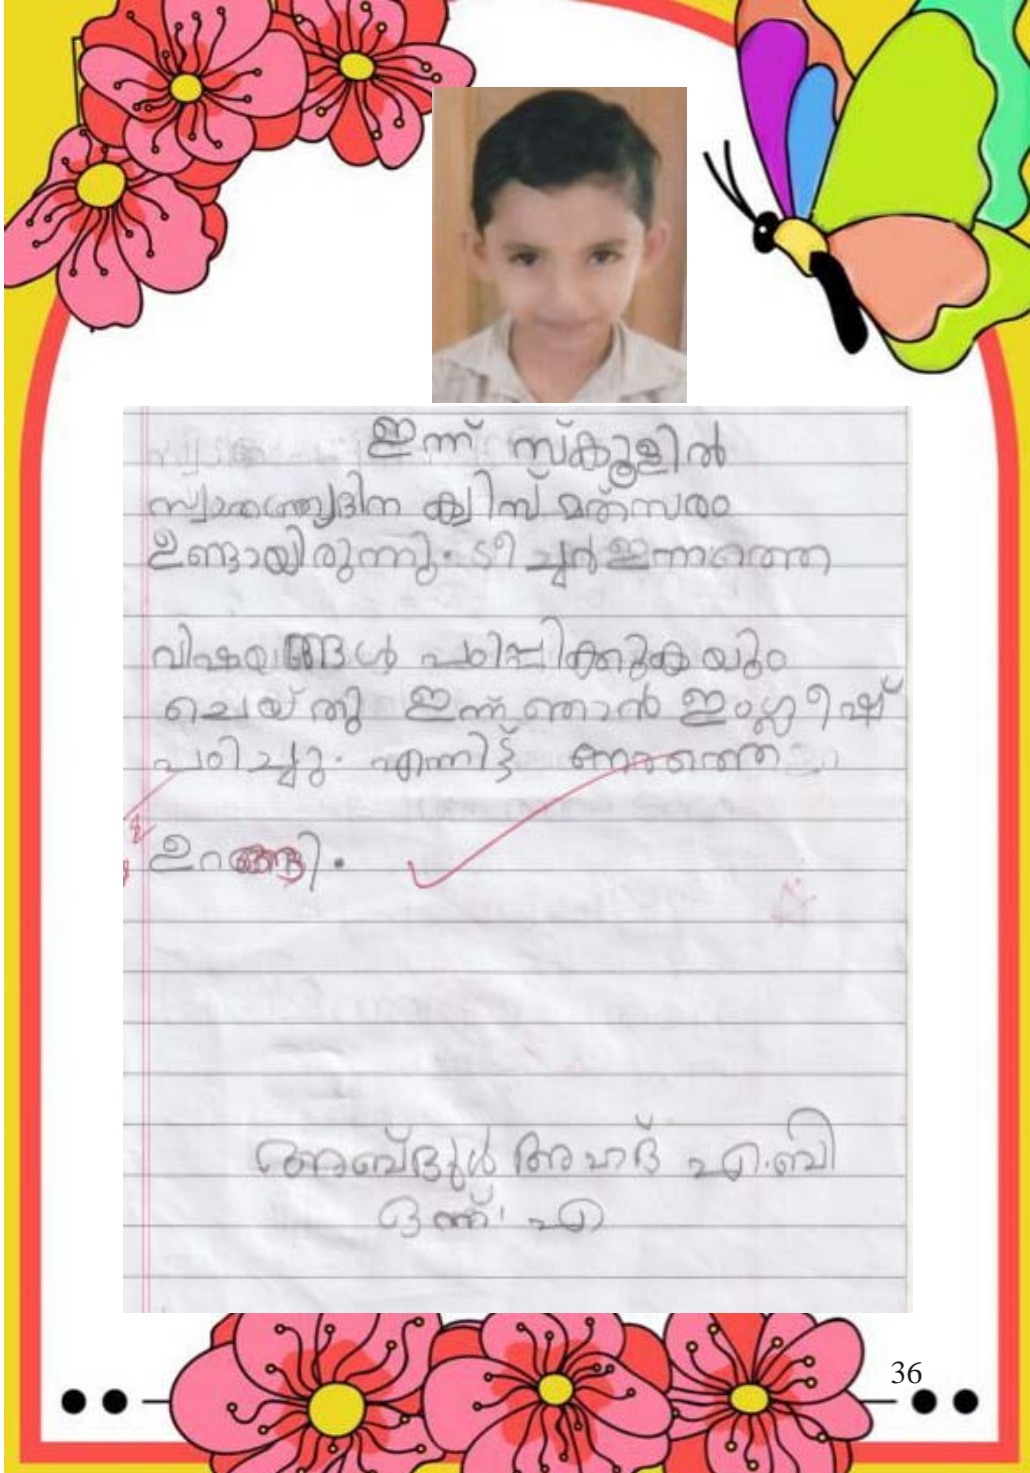 ഇന്ന് സ്കൂളിൽ
സ്വാതന്ത്ര്യദിന ക്വിസ് മത്സരം
ഉണ്ടായിരുന്നു. ടീച്ചർ ഇന്നത്തെ
വിഷയങ്ങൾ പഠിപ്പിക്കുകയും
ചെയ്തു ഇന്ന് ഞാൻ ഇംഗ്ലീഷ്
പഠിച്ചു. എന്നിട്ട്
ഉറങ്ങി.
അബ്ദുൾ അഹദ് എ.ബി
ഒന്ന് എ
36